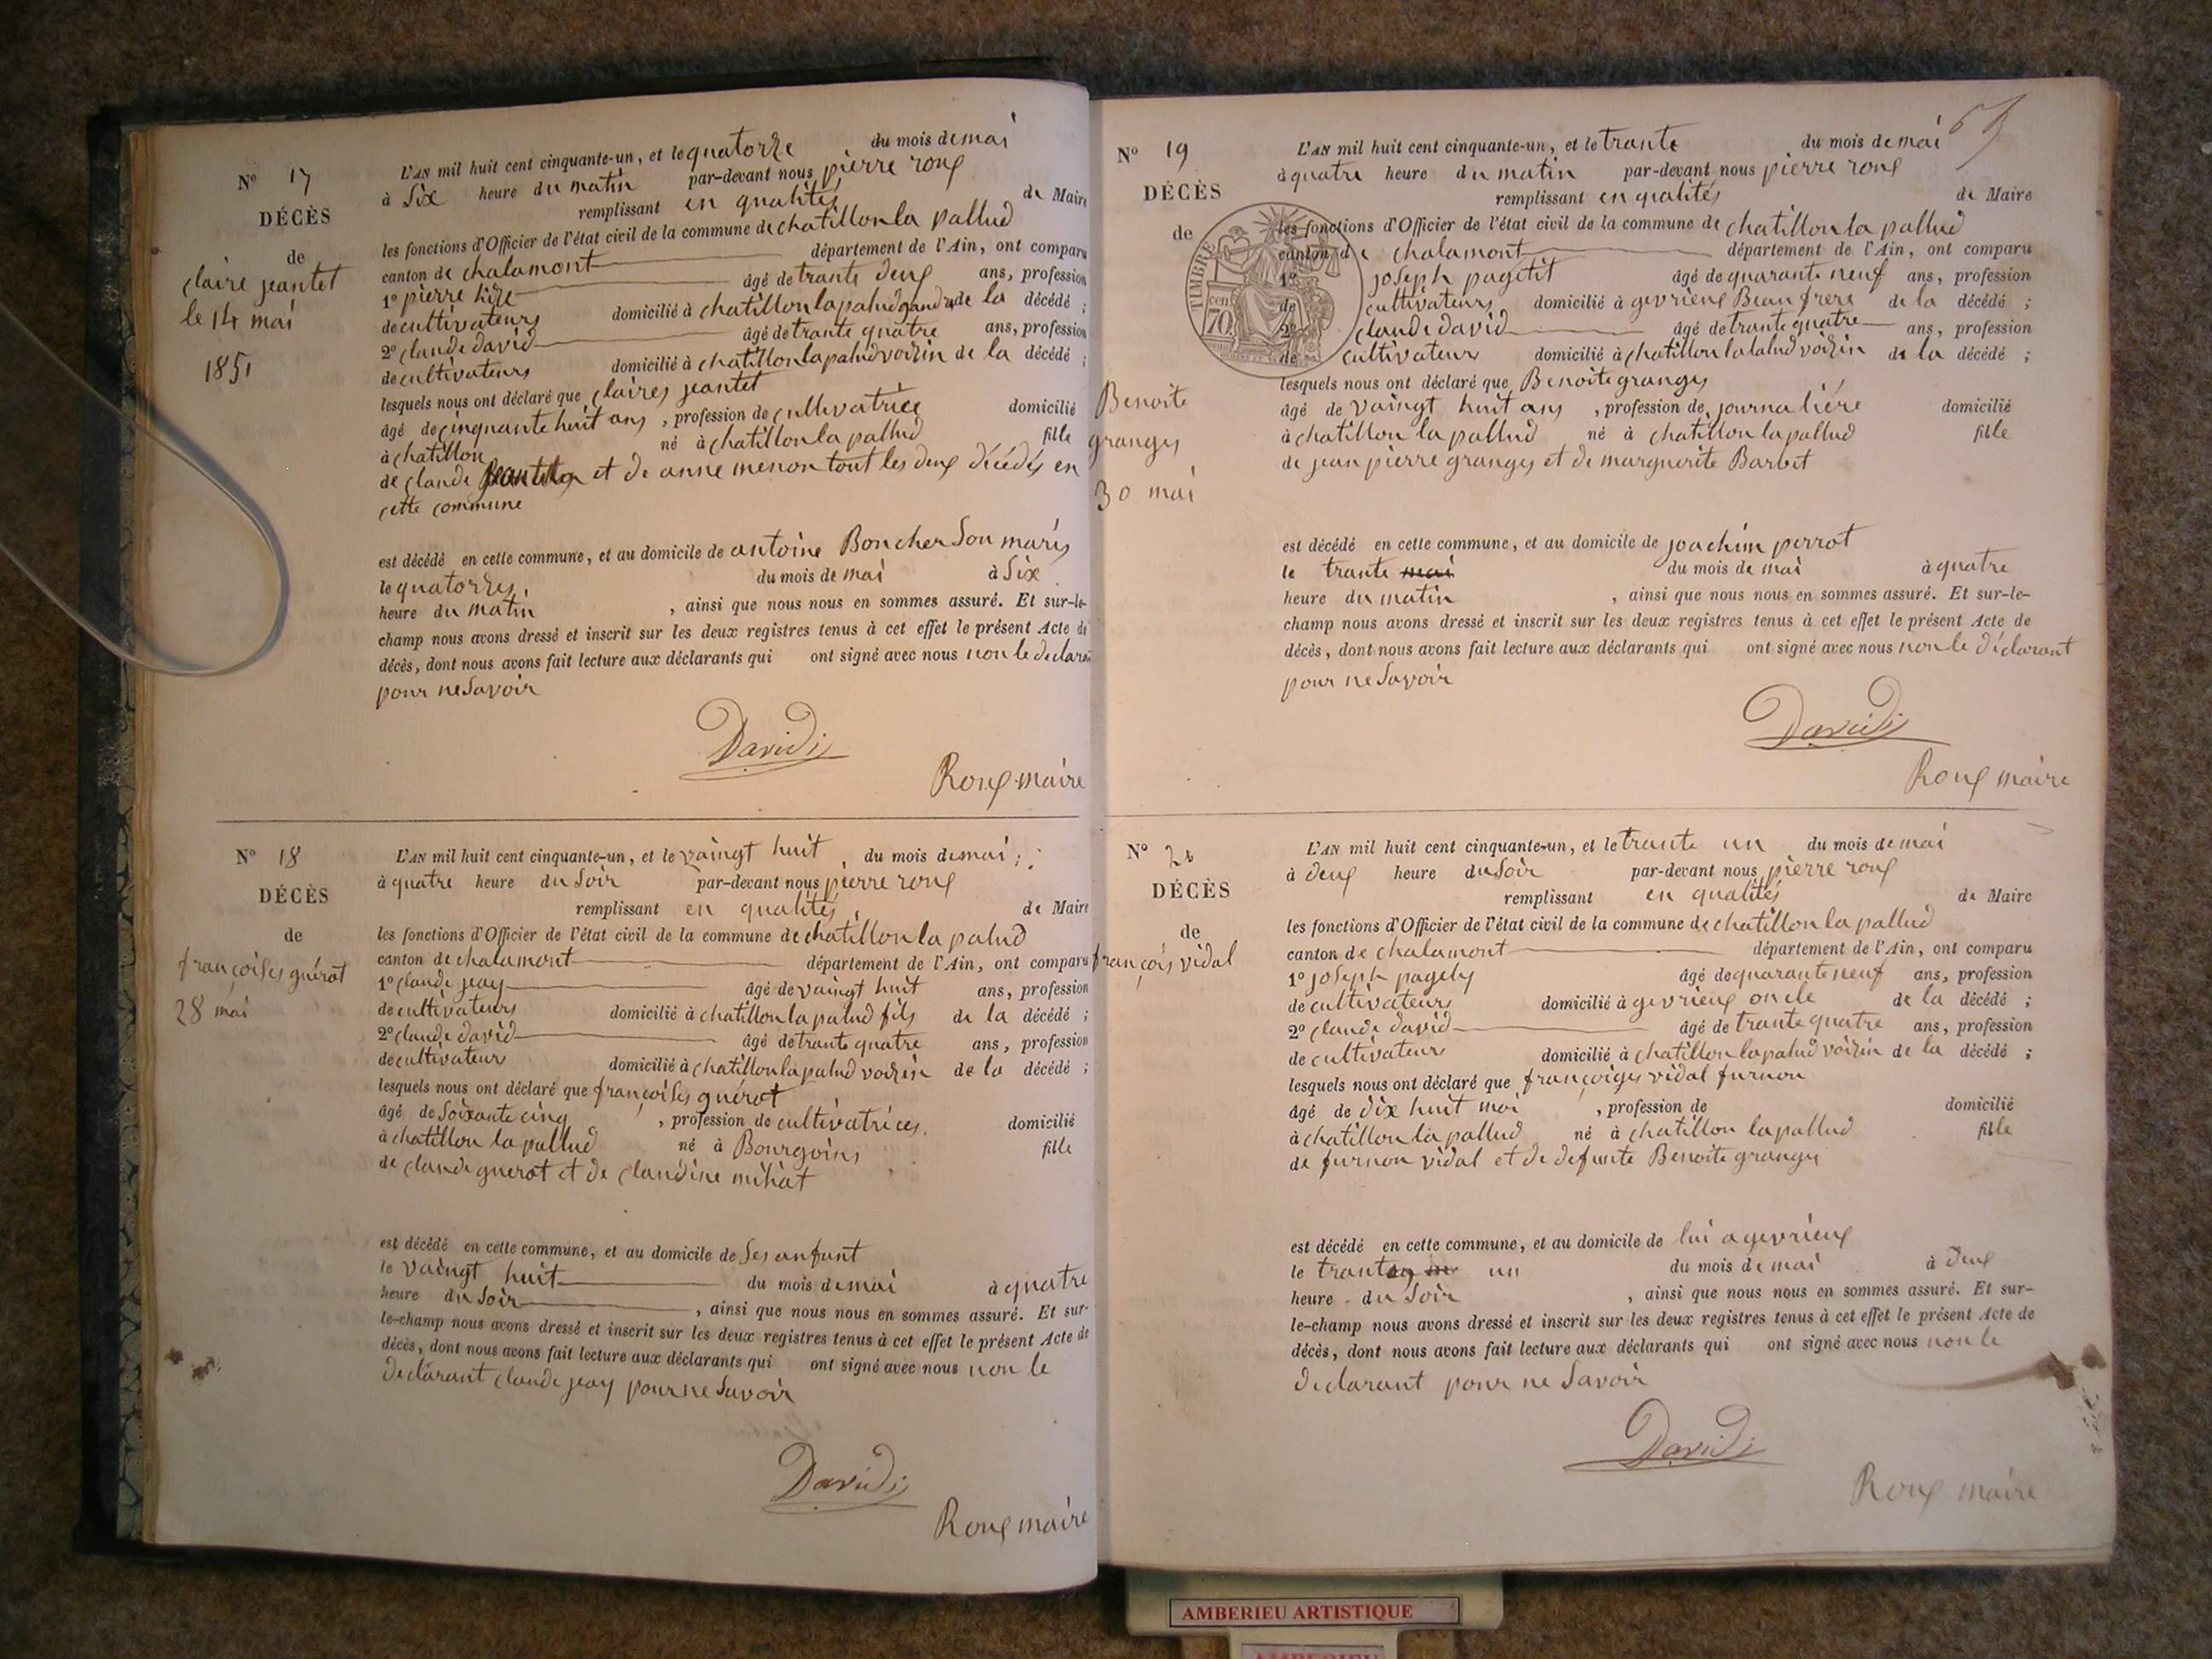 N° 17
DÉCÈS
de
claire jeantet
le 14 mai
1851
L'AN mil huit cent cinquante-un, et le quatorze du mois de mai
à Six heure du matin par-devant nous pierre roux
remplissant en qualités de Maire
les fonctions d'Officier de l'état civil de la commune de chatillon la pallud
canton de chalamont département de l'Ain, ont comparu
1° pierre âgé de trante deux ans, profession
de cultivateurs domicilié à chatillon la palud gandre de la décédé ;
2° claude david âgé de trante quatre ans, profession
de cultivateurs domicilié à chatillon la palud voizin de la décédé ;
lesquels nous ont déclaré que claires jeantet
âgé de cinquante huit ans, profession de cultivatrice domicilié
à chatillon né à chatillon la pallud fille
de claude et de anne menon tout les deux décédés en
cette commune
est décédé en cette commune, et au domicile de antoine Boucher Son maris
le quatorzes du mois de mai à Six
heure du matin, ainsi que nous nous en sommes assuré. Et sur-le-
champ nous avons dressé et inscrit sur les deux registres tenus à cet effet le présent Acte de
décès, dont nous avons fait lecture aux déclarants qui ont signé avec nous non le declarant
pour ne Savoir
David
Roux maire
N° 18
DÉCÈS
de
françoises guérot
28 mai
L'AN mil huit cent cinquante-un, et le vaingt huit du mois de mai ;
à quatre heure du Soir par-devant nous pierre roux
remplissant en qualités de Maire
les fonctions d'Officier de l'état civil de la commune de chatillon la palud
canton de chalamont département de l'Ain, ont comparu
1° claude jeay âgé de vaingt huit ans, profession
de cultivateurs domicilié à chatillon la palud fils de la décédé ;
2° claude david âgé de trante quatre ans, profession
de cultivateur domicilié à chatillon la palud voizin de la décédé ;
lesquels nous ont déclaré que françoises guérot
âgé de Soixante cinq, profession de cultivatrices domicilié
à chatillon la pallud né à Bourgoins fille
de claude guerot et de claudine
est décédé en cette commune, et au domicile de Ses anfant
le vaingt huit du mois de mai à quatre
heure du Soir, ainsi que nous nous en sommes assuré. Et sur-
le-champ nous avons dressé et inscrit sur les deux registres tenus à cet effet le présent Acte de
décès, dont nous avons fait lecture aux déclarants qui ont signé avec nous non le
declarant claude jeay pour ne Savoir
David
Roux maire
N° 19
DÉCÈS
de
Benoite
granges
30 mai
TIMBRE
cen
70
L'AN mil huit cent cinquante-un, et le trante du mois de mai
à quatre heure du matin par-devant nous pierre roux
remplissant en qualités de Maire
les fonctions d'Officier de l'état civil de la commune de chatillon la pallud
canton de chalamont département de l'Ain, ont comparu
1° joseph pagetit âgé de quarante neuf ans, profession
de cultivateurs domicilié à gevrieux Beau frere de la décédé ;
2° claude david âgé de trante quatre ans, profession
de cultivateurs domicilié à chatillon la lalud voizin de la décédé ;
lesquels nous ont déclaré que Benoite granges
âgé de vaingt huit ans, profession de journalière domicilié
à chatillon la pallud né à chatillon la pallud fille
de jean pierre granges et de marguerite Barbet
est décédé en cette commune, et au domicile de joachim perrot
le trante mai du mois de mai à quatre
heure du matin, ainsi que nous nous en sommes assuré. Et sur-le-
champ nous avons dressé et inscrit sur les deux registres tenus à cet effet le présent Acte de
décès, dont nous avons fait lecture aux déclarants qui ont signé avec nous non le déclarant
pour ne Savoir
David
Roux maire
N°
DÉCÈS
de
françois vidal
L'AN mil huit cent cinquante-un, et le trante un du mois de mai
à deux heure du Soir par-devant nous pierre roux
remplissant en qualités de Maire
les fonctions d'Officier de l'état civil de la commune de chatillon la pallud
canton de chalamont département de l'Ain, ont comparu
1° joseph âgé de quarante neuf ans, profession
de cultivateurs domicilié à gevrieux oncle de la décédé ;
2° claude david âgé de trante quatre ans, profession
de cultivateur domicilié à chatillon la palud voizin de la décédé ;
lesquels nous ont déclaré que vidal furnon
âgé de dix huit moi, profession de domicilié
à chatillon la pallud né à chatillon la pallud fille
de furnon vidal et de defunte Benoite granges
est décédé en cette commune, et au domicile de lui a gevrieux
le trante un du mois de mai à deux
heure du Soir, ainsi que nous nous en sommes assuré. Et sur-
le-champ nous avons dressé et inscrit sur les deux registres tenus à cet effet le présent Acte de
décès, dont nous avons fait lecture aux déclarants qui ont signé avec nous non le
declarant pour ne Savoir
David
Roux maire
AMBERIEU ARTISTIQUE
AMBERIEU